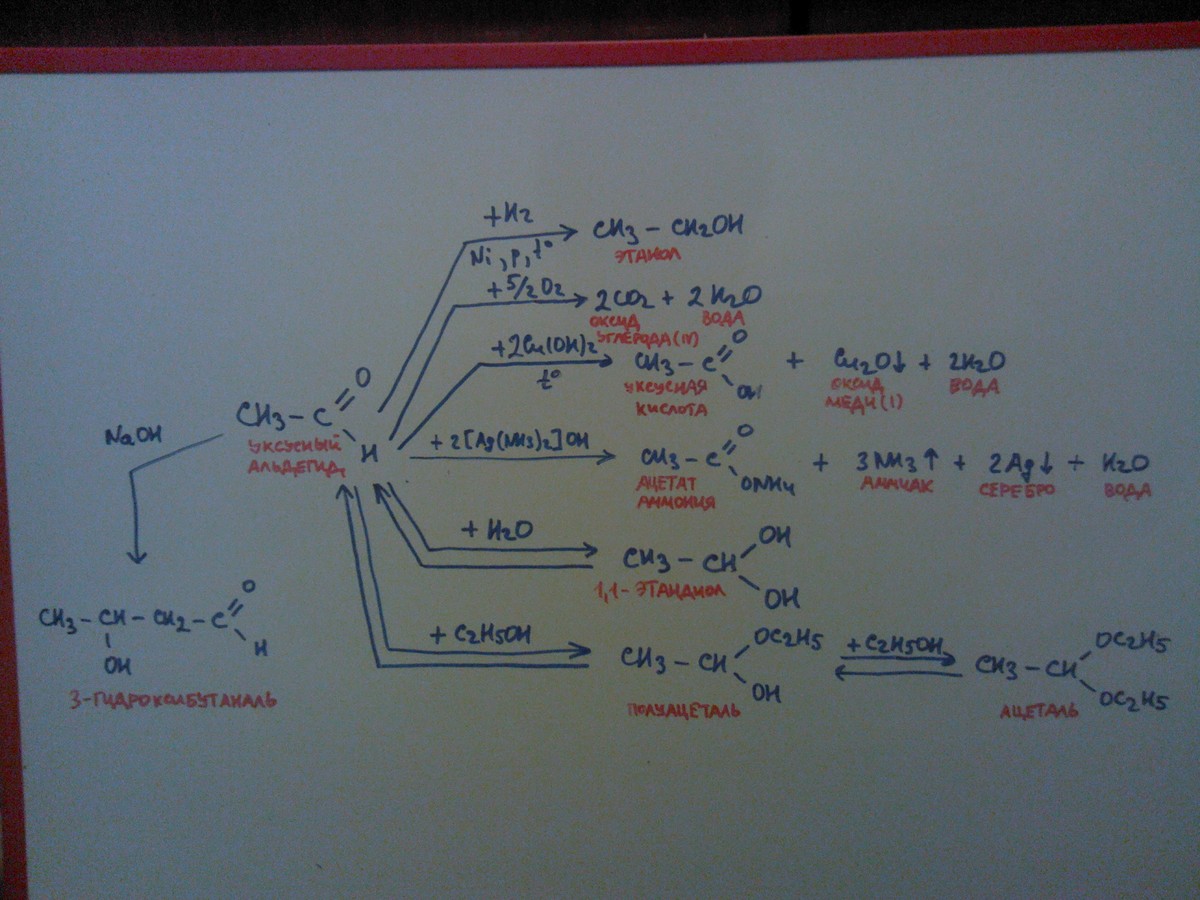 +H2
Ni, p, t°
CH3 – CH2OH
ЭТАНОЛ
+5/2O2
2CO2 + 2H2O
ОКСИД УГЛЕРОДА(IV)
ВОДА
+2Cu(OH)2
t°
CH3 – C
O
OH
+ Cu2O↓ + 2H2O
УКСУСНАЯ КИСЛОТА
ОКСИД МЕДИ(I)
ВОДА
CH3 – C
O
H
УКСУСНЫЙ
АЛЬДЕГИД
NaOH
+ 2[Ag(NH3)2]OH
CH3 – C
O
ONH4
+ 3NH3↑ + 2Ag↓ + H2O
АЦЕТАТ АММОНИЯ
АММИАК
СЕРЕБРО
ВОДА
+ H2O
CH3 – CH
OH
OH
1,1-ЭТАНДИОЛ
CH3 – CH – CH2 – C
O
H
OH
3-ГИДРОКСИЛБУТАНАЛЬ
+ C2H5OH
CH3 – CH
OC2H5
OH
ПОЛУАЦЕТАЛЬ
+ C2H5OH
CH3 – CH
OC2H5
OC2H5
АЦЕТАЛЬ